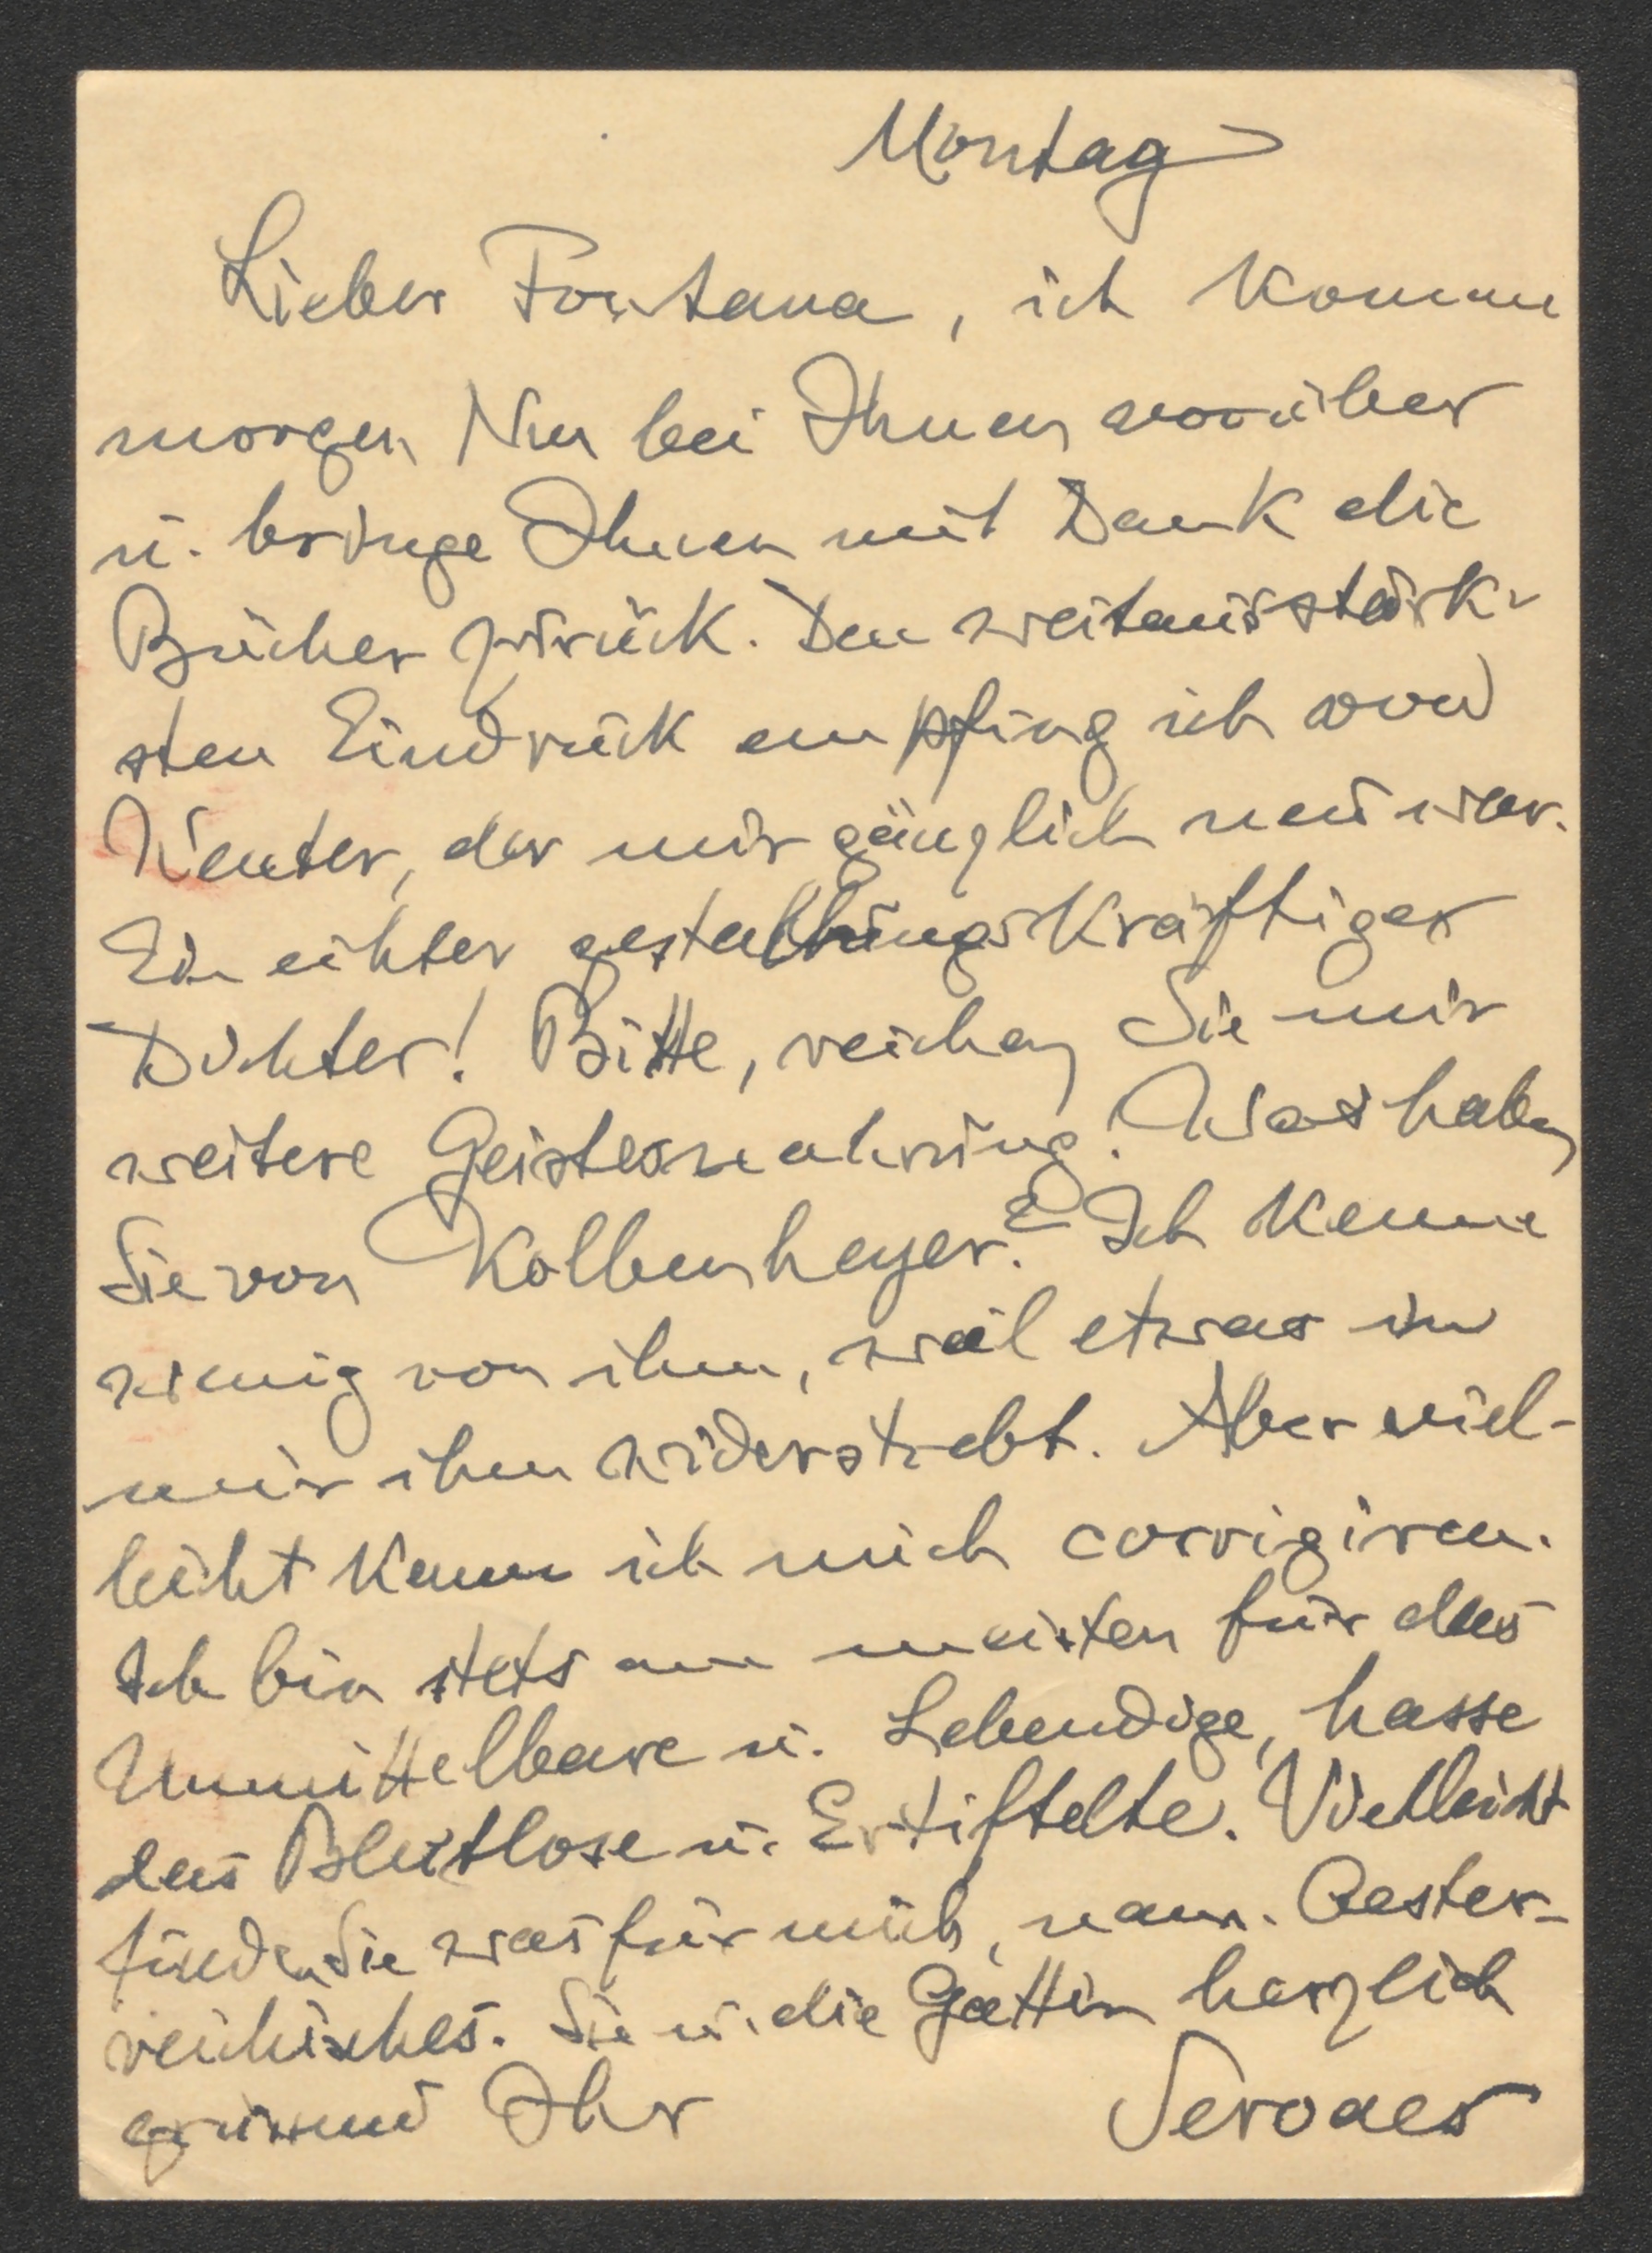 Montag
Lieber Fontana, ich komme
morgen Nm bei Ihnen vorüber
u. bringe Ihnen mit Dank die
Bücher zurück. Den weitausstärk-
sten Eindruck empfing ich von
der mir gänzlich neu war.
Ein echter gestaltungskräftiger
Dichter! Bitte, reichen Sie mir
weitere Geistesnahrung! Was haben
Sie von Kolbenheyer? Ich kenne
wenig von ihm, weil etwas in
mir ihm widerstrebt. Aber viel-
leicht kann ich mich corrigiren.
Ich bin stets am meisten für das
Unmittelbare u. Lebendige, hasse
das Blutlose u. Ertiftelte. Vielleicht
finden Sie was für mich, nam. Oester-
reichisches. Sie u. die Gattin herzlich
grüssend Ihr Servaes